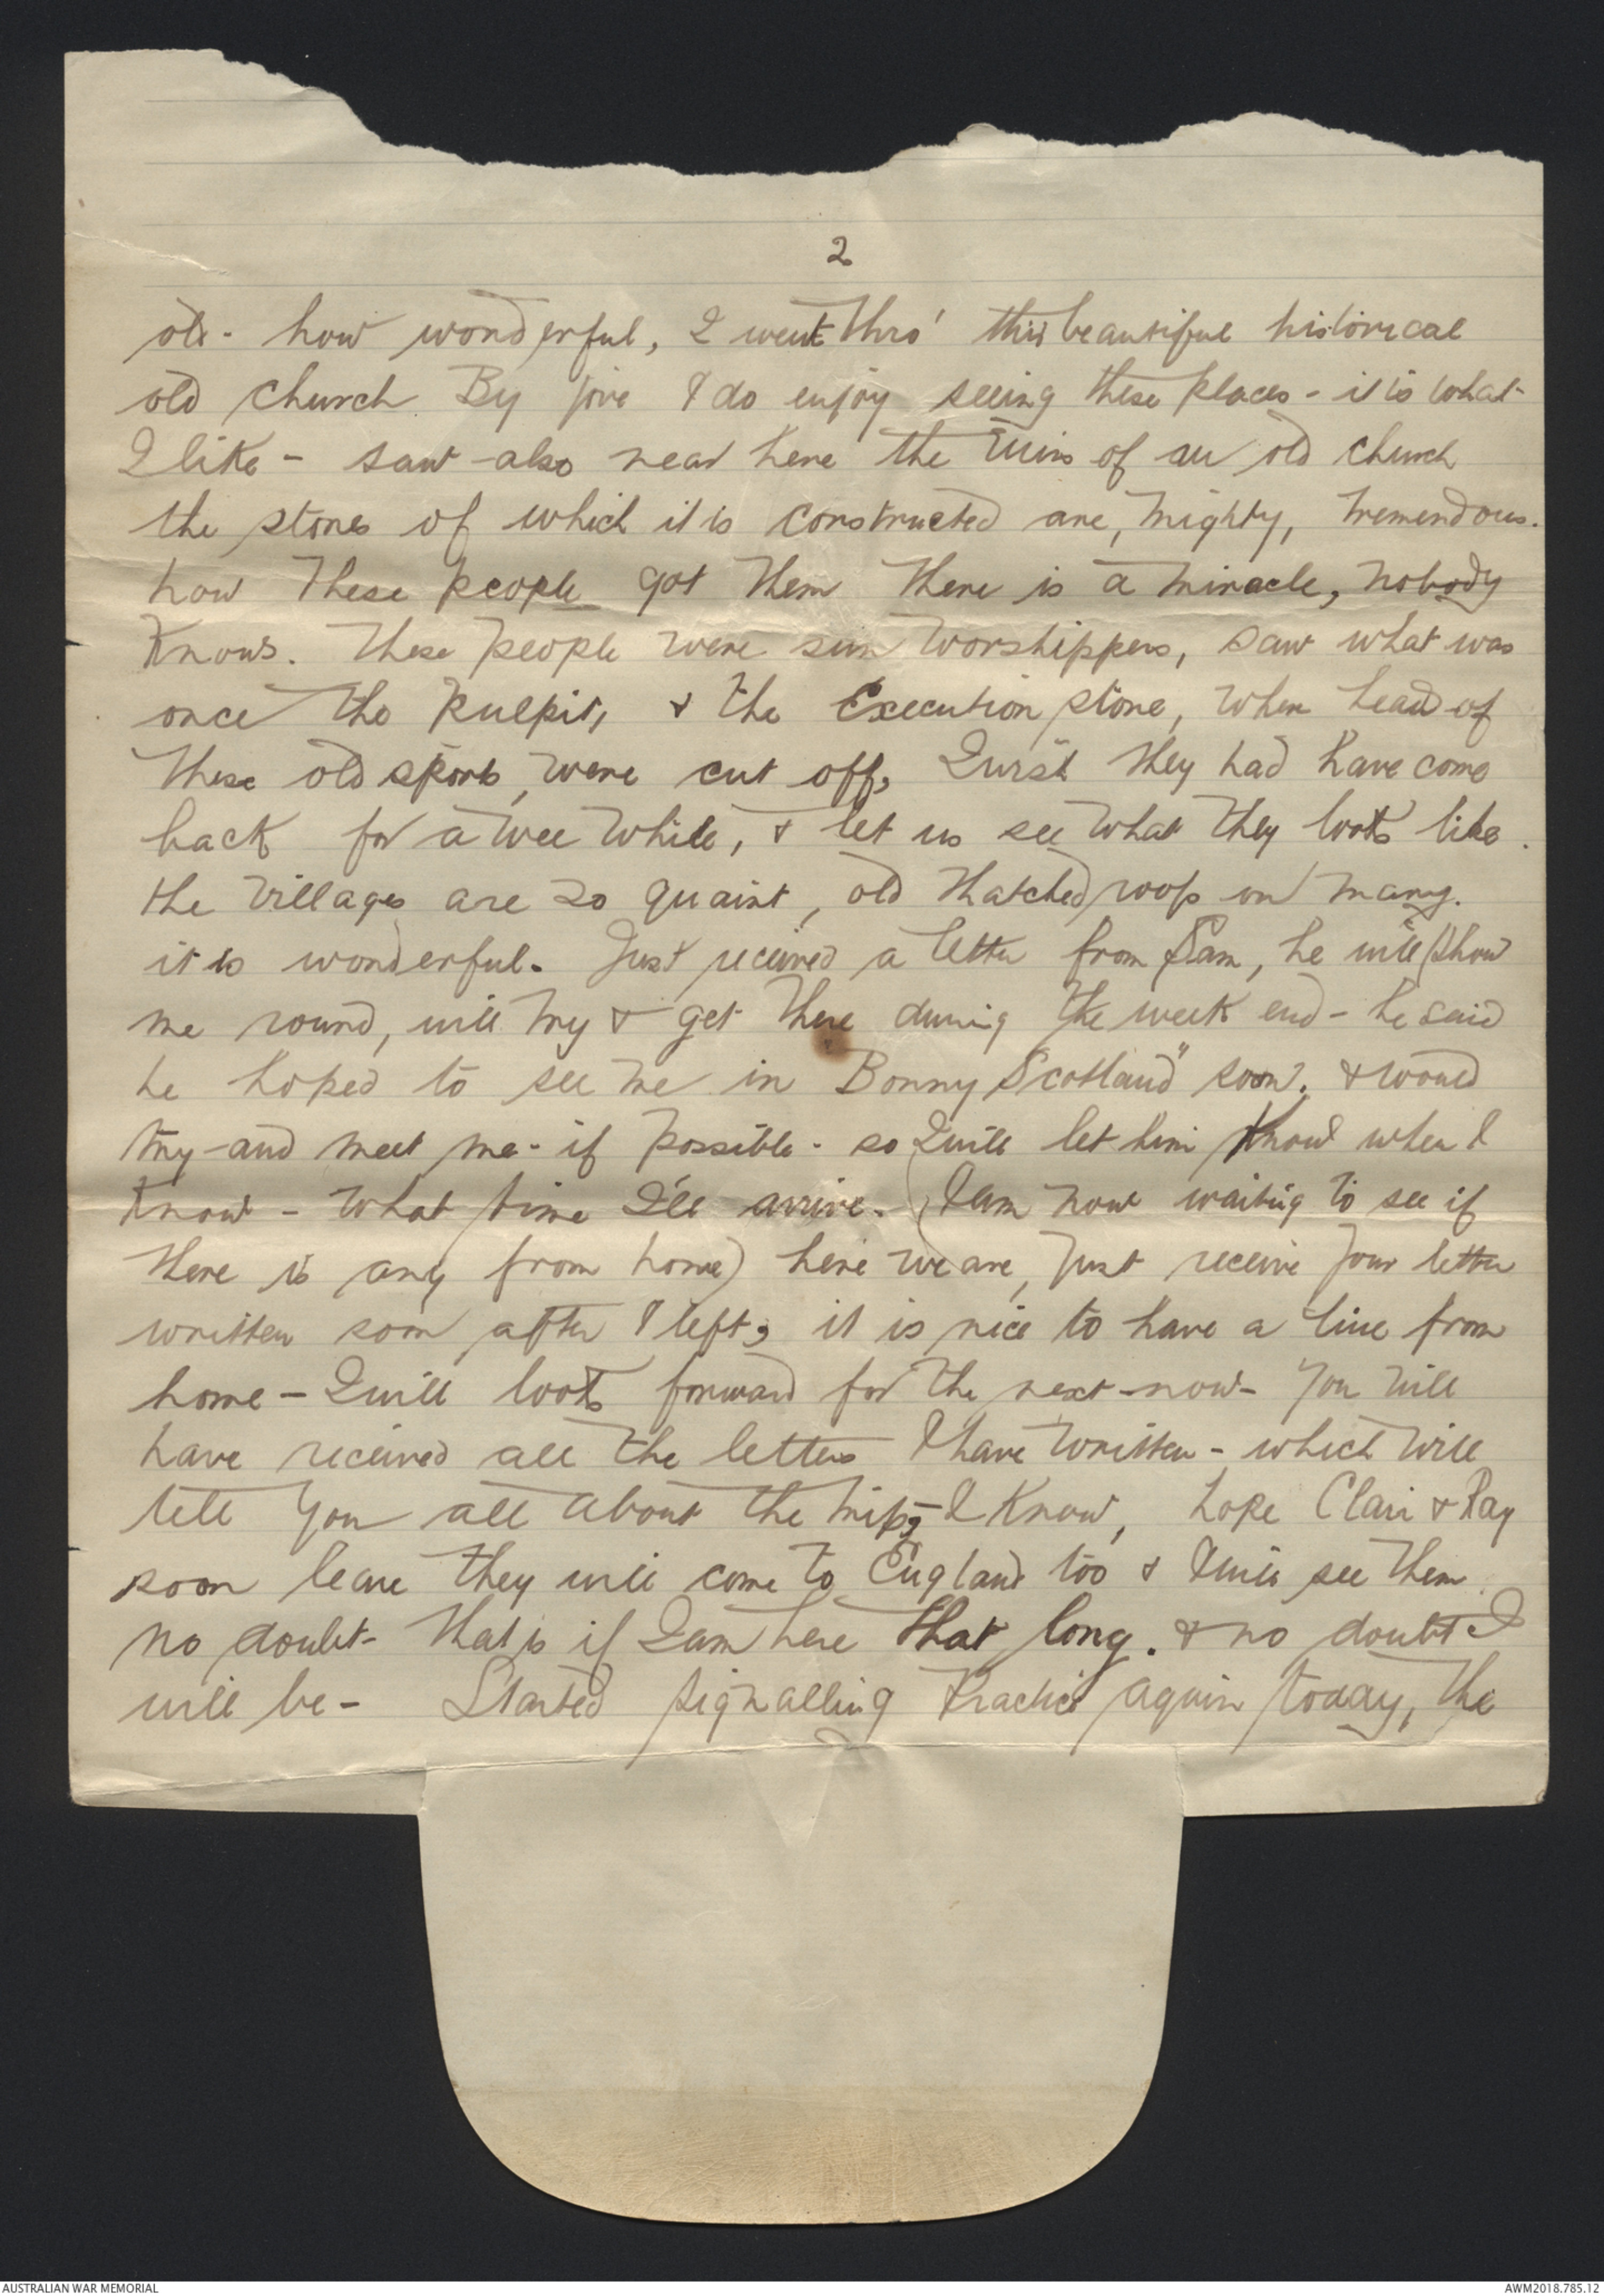 2
old - how wonderful, I went thro' this beautiful historical
old church. By jove I do enjoy seeing these places - it is what
I like - saw also near here the ruins of an old church
the stones of which it is constructed are, mighty, tremendous.
how these people got them there is a miracle, nobody
knows. These people were sun worshippers, saw what was
once the pulpit, & the Execution stone, when head of
these old sports, were cut off, I wish they had have come
back for a wee while, & let us see what they look like.
the villages are so quaint, old thatched roofs on many.
it is wonderful. Just received a letter from Sam, he will show
me round, will try & get there during the week end - he said
he hoped to see me in Bonny Scotland" soon. & would
try - and meet me - if possible - so I will let him know when I
know - what time I'll arrive. (I am now waiting to see if
there is any from home) here we are, just receive your letter
written soon after I left, it is nice to have a line from
home - I will look forward for the next - now - you will
have received all the letters I have written - which will
tell you all about the trip, I know, hope Clair & Ray
soon leave they will come to England too & I will see them
no doubt - that is if I am here that long. & no doubt I
will be - Started signalling practice again today, the
AUSTRALIAN WAR MEMORIAL
AWM2018.785.12